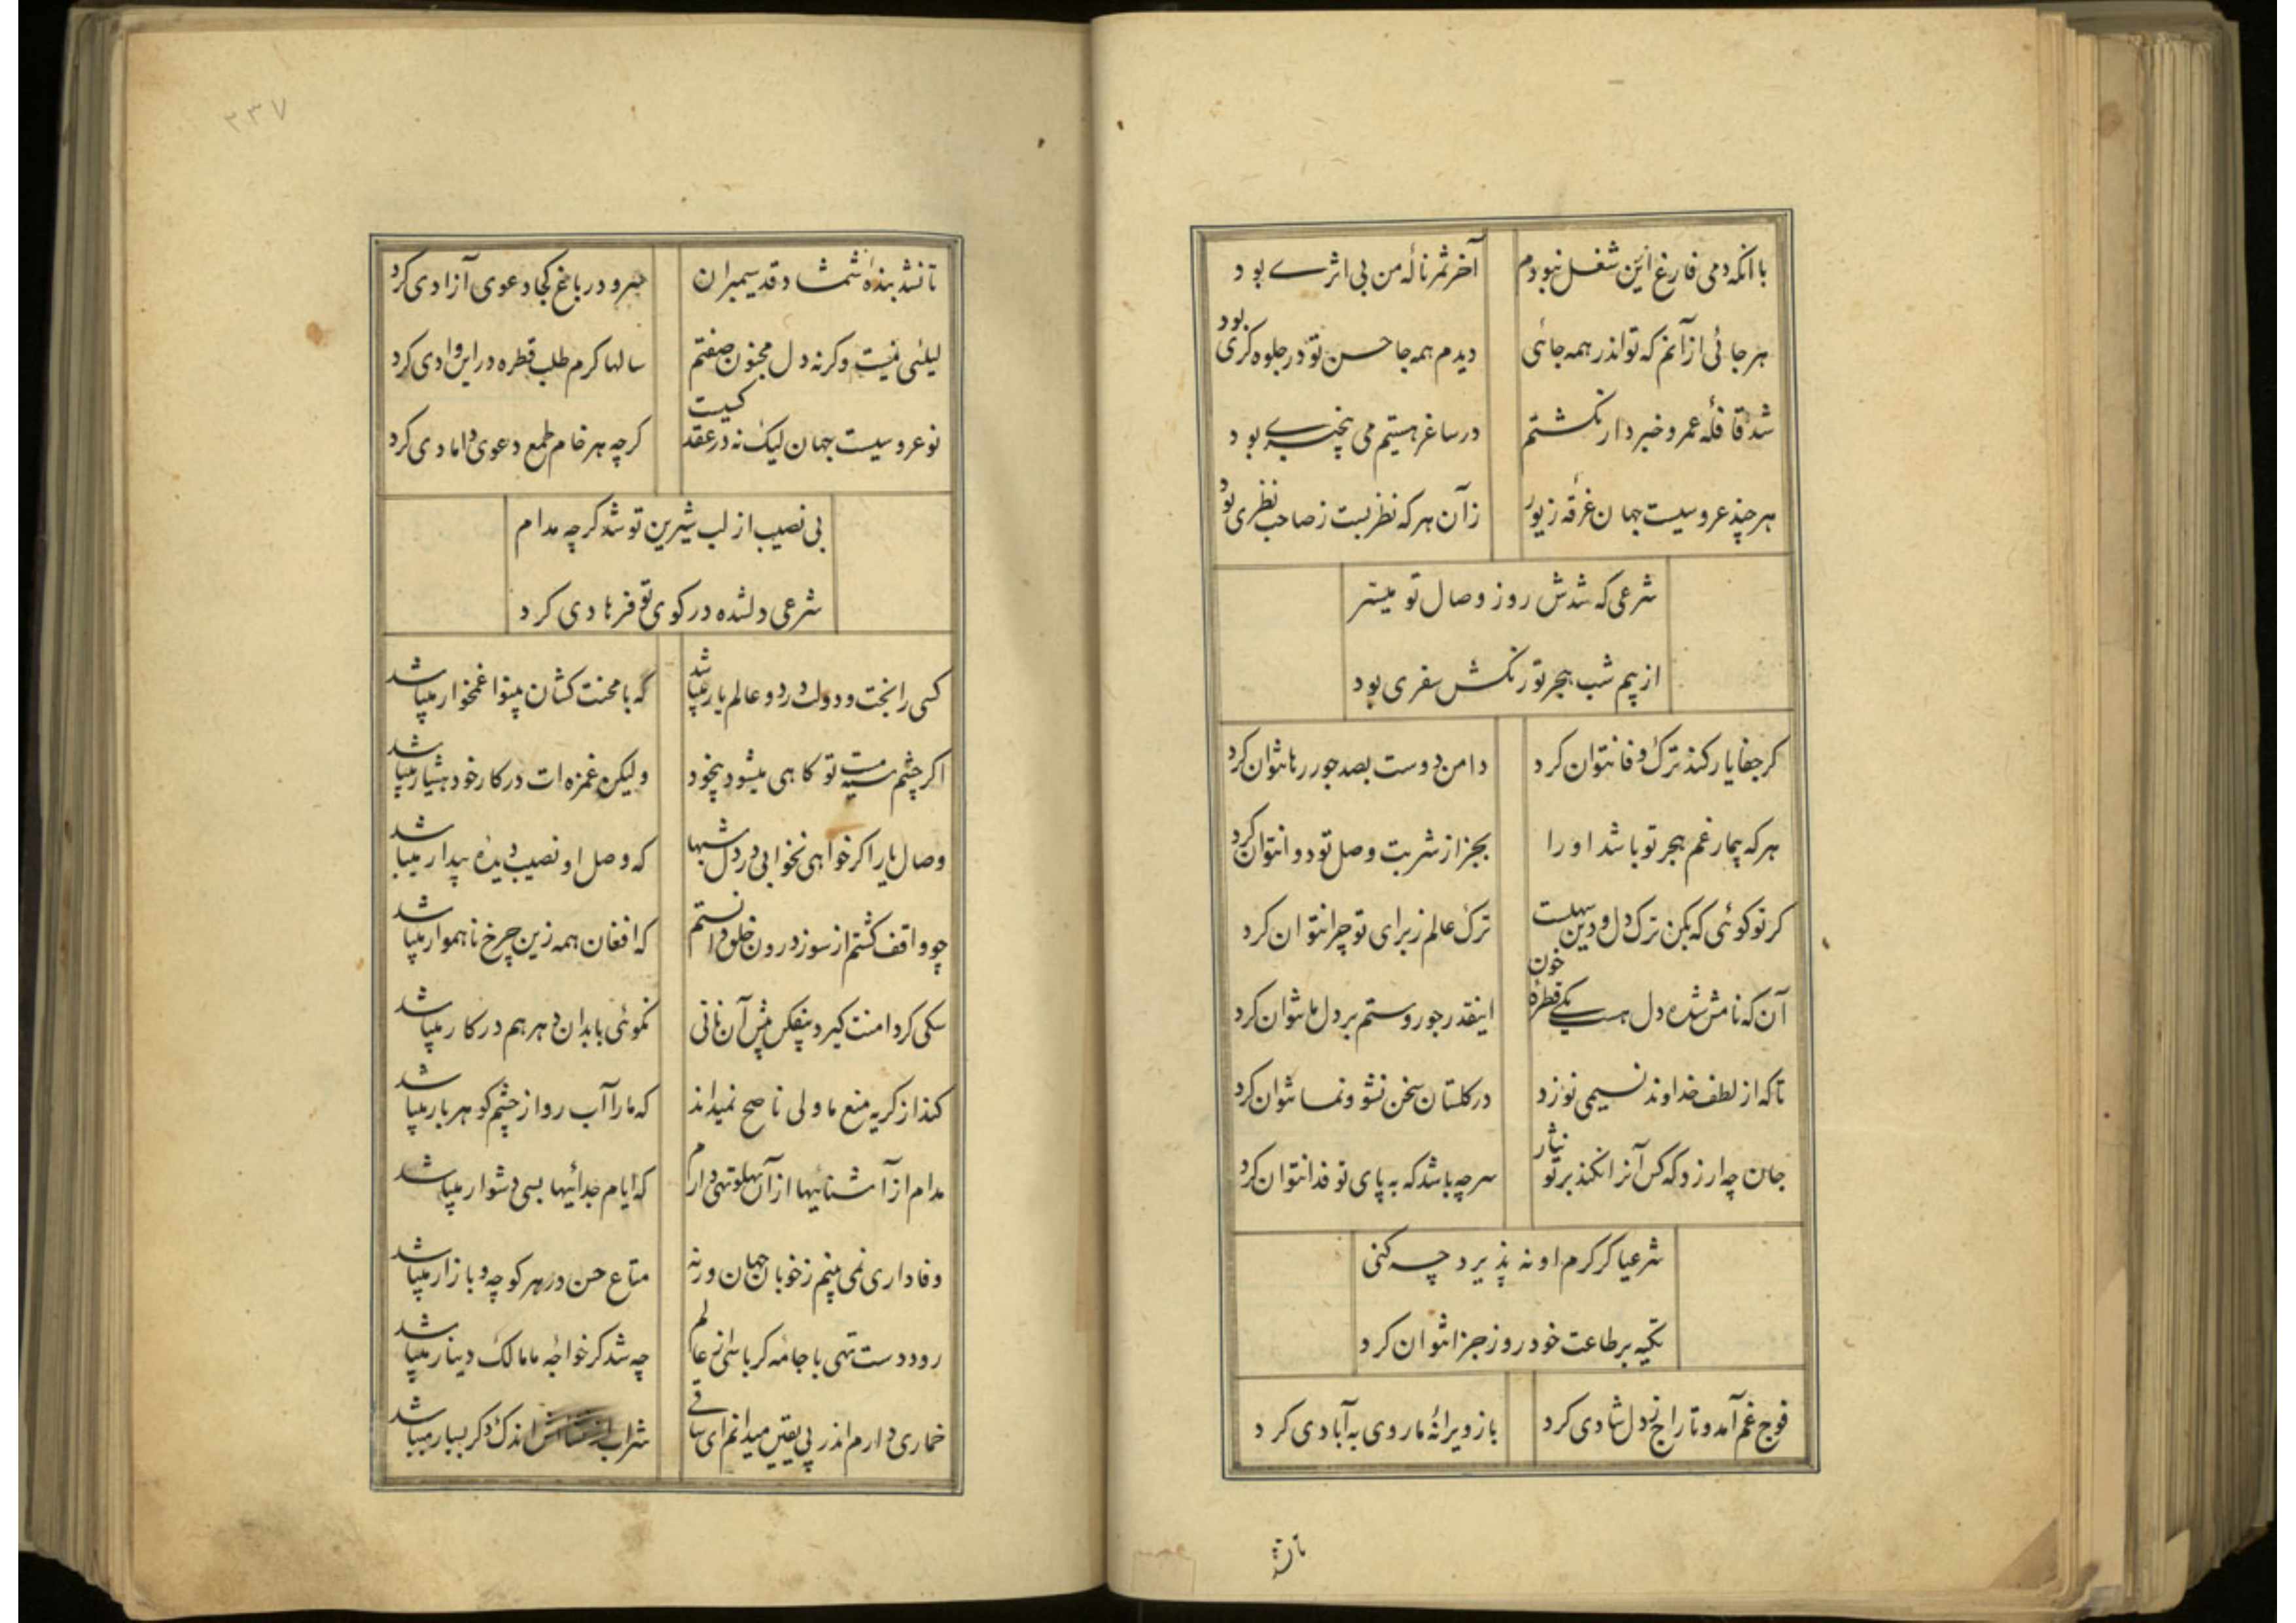 با آنکه دمی فارغ ازین شغل نبودم آخر ثمر نالهٔ من بی اثرے بود
هر جائی از آنم که تو اندر همه جائی دیدم همه جا حسن تو در جلوه کری بود
شد قافلهٔ عمر و خبردار نکشتم در ساغر هستیم می بیخبرے بود
هر چند عروسیست جهان غرقهٔ زیور زآن هر که نظر بست ز صاحب نظری بود
شرعی که شدش روز وصال تو میسر
از بیم شب هجر تو رنکش سفری بود
کر جفا یار کند ترک وفا نتوان کرد دامن دوست بصد جور رها نتوان کرد
هر که بیمار غم هجر تو باشد او را بجز از شربت وصل تو دوا نتوان کرد
کر تو کوئی که بکن ترک دل و دین سهلست ترک عالم ز برای تو چرا نتوان کرد
آن که نامش شده دل هست یکے قطره خون اینقدر جور و ستم بر دل ما نتوان کرد
تا که از لطف خداوند نسیمی نوزد در کلستان سخن نشو و نما نتوان کرد
جان چه ارزد که کس آنرا نکند بر تو نثار سر چه باشد که به پای تو فدا نتوان کرد
شرعیا کر کرم او نه پذیرد چه کنی
تکیه بر طاعت خود روز جزا نتوان کرد
فوج غم آمد و تاراج ز دل شادی کرد باز ویرانهٔ ما روی به آبادی کرد
تا نشد
۲۳۷
تا نشد بندهٔ شمشاد قد سیمبران سرو در باغ کجا دعوی آزادی کرد
لیلئی نیست وکرنه دل مجنون صفتم سالها کرم طلب قطره در این وادی کرد
نو عروسیست جهان لیک نه در عقد کسیت کرچه هر خام طمع دعوی دامادی کرد
بی نصیب از لب شیرین تو شد کرچه مدام
شرعی دلشده در کوی تو فرهادی کرد
کسی را بخت و دولت در دو عالم یار میباشد که با محنت کشان بینوا غمخوار میباشد
اکر چشم سیه مست تو کاهی میشود بیخود ولیکن غمزه ات در کار خود هشیار میباشد
وصال یار را کر خواهی نخوابی در دل شبها که وصل او نصیب دیدهٔ بیدار میباشد
چو واقف کشتم از سوز درون خلق دانستم که افغان همه زین چرخ ناهموار میباشد
سکی کر دامنت کیرد بیفکن پیش آن نانی نکوئی با بدان دهر هم در کار میباشد
کند از کریه منع ما ولی ناصح نمیداند که ما را آب رو از چشم کوهر بار میباشد
مدام از آشنائیها از آن پهلو تهی دارم که ایام جدائیها بسی دشوار میباشد
وفاداری نمی بینم ز خوبان جهان ورنه متاع حسن در هر کوچه و بازار میباشد
رود دست تهی با جامه کرباس از عالم چه شد کر خواجه ما مالک دینار میباشد
خماری دارم اندر پی یقین میدانم ای ساقے شراب اندک کر بسیار میباشد